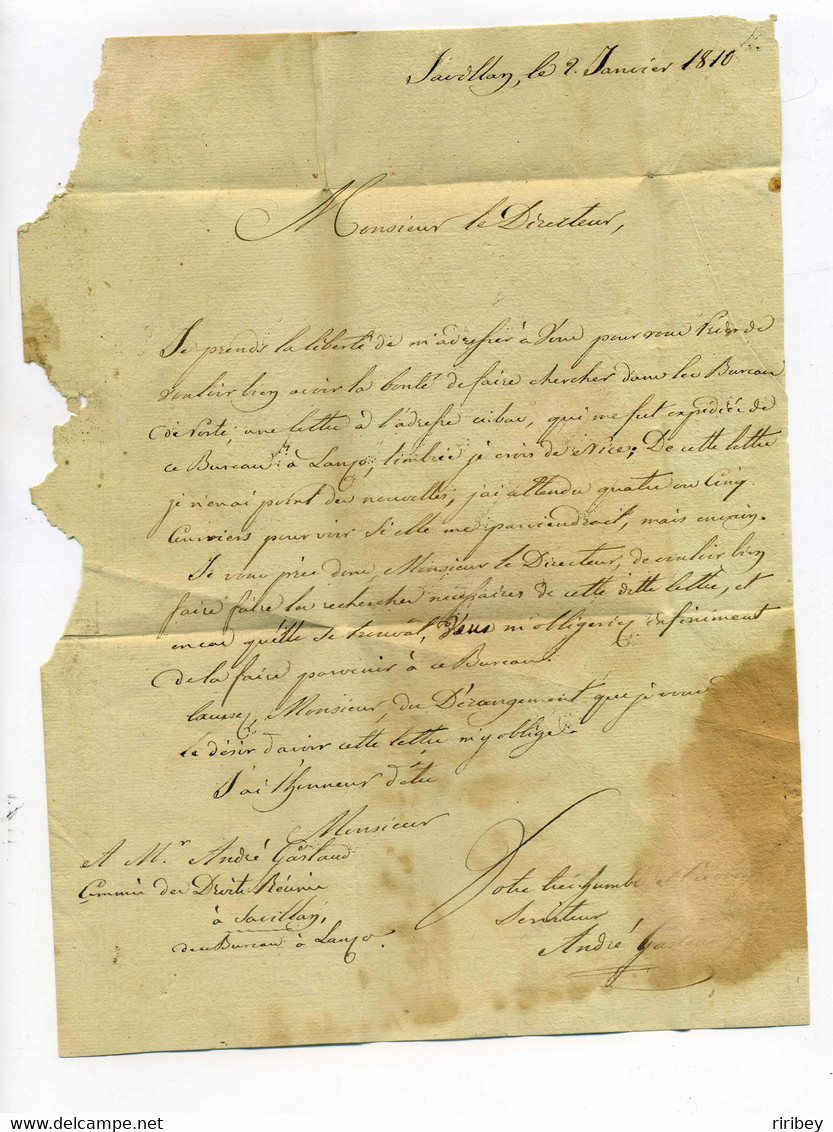 Savillan, le 2. Janvier 1810
Monsieur le Directeur,
Je prends la liberté de m'adresser à Vous pour vous Prier de
vouloir bien avoir la bonté de faire chercher dans les Bureau
de Poste, une lettre à l'adresse cibas, qui me fut expédiée de
ce Bureau à Lanzo, timbrée je crois de Nice; De cette lettre
je n'en ai point des nouvelles, j'ai attendu quatre ou Cinq
Courriers pour voir si elle me parviendrait, mais envain.
Je vous prie donc, Monsieur le Directeur, de vouloir bien
faire faire les recherches nécessaires de cette ditte lettre, et
en cas qu'elle se trouvât, Vous m'obligeriez infiniment
de la faire parvenir à ce Bureau.
Monsieur, du Dérangement que je vous
le désir d'avoir cette lettre m'y oblige.
J'ai l'honneur d'être
Monsieur
A Mr. André Gastaud
Commis des Droits Réunis
à Savillan,
du Bureau à Lanzo.
Votre très humble et
Serviteur
André
ribey